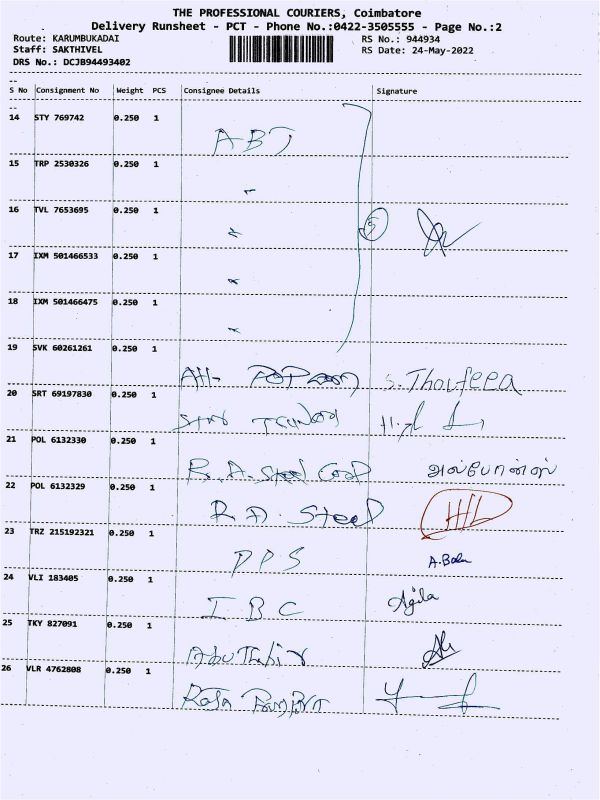 THE PROFESSIONAL COURIERS, Coimbatore
Delivery Runsheet - PCT - Phone No.:0422-3505555 - Page No.:2
Route: KARUMBUKADAI
RS No.: 944934
Staff: SAKTHIVEL
RS Date: 24-May-2022
DRS No.: DCJB94493402
S No Consignment No Weight PCS Consignee Details Signature
14 STY 769742 0.250 1
ABT
15 TRP 2530326 0.250 1
16 TVL 7653695 0.250 1
5
17 IXM 501466533 0.250 1
18 IXM 501466475 0.250 1
19 SVK 60261261 0.250 1
S. Thoufeea
20 SRT 69197830 0.250 1
21 POL 6132330 0.250 1
R.A. Steel Corp
22 POL 6132329 0.250 1
R.A. Steel
23 TRZ 215192321 0.250 1
PPS A. Bala
24 VLI 183405 0.250 1
IBC Agila
25 TKY 827091 0.250 1
Abu Thahir
26 VLR 4762808 0.250 1
Raja